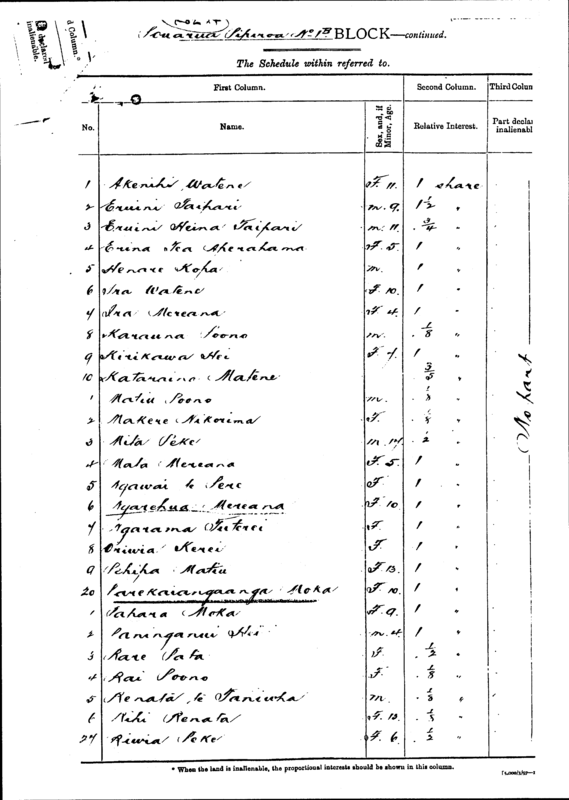 Column.
inalienable.
BLOCK—continued.
The Schedule within referred to.
First Column. Second Column. Third Colum
No. Name. Sex, and, if Minor, Age. Relative Interest. Part declar inalienabl
1 Akenihi Watene F. 11. 1 share
2 Eruini Taipari m. 9. 1 1/2 "
3 Eruini Heina Taipari m. 11. 3/4 "
4 Erina Aperahama F. 5. 1 "
5 Henare Kopa m. 1 "
6 Ira Watene F. 10. 1 "
7 Ira Mereana F. 4. 1 "
8 Karauna Poono m. 1/8 "
9 Kirikawa Hei F. 7. 1 "
10 Kataraina Matene 3/5 "
1 Matiu Poono m. 1/8 "
2 Makere Nikorima F. 1/8 "
3 Mita Peke m. 1/2 "
4 Mata Mereana F. 5. 1 "
5 Ngawai te F 1 "
6 Ngarehua Mereana F. 10 1 "
7 Ngarama F. 1 "
8 Oriwia Kerei F. 1 "
9 Matiu F 13. 1 "
20 Parekaiangaanga Moka F. 10. 1 "
1 Pahara Moka F. 9. 1 "
2 Paninganui Hei m. 4 1 "
3 Rare Pata F. 1/2 "
4 Rai Poono F. 1/8 "
5 Renata te Taniwha m. 1/8 "
6 Rihi Renata F. 1/8 "
27 Riwia Peke F. 6. 1/2 "
No part
* When the land is inalienable, the proportional interests should be shown in this column.